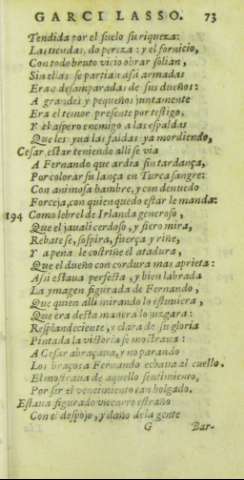 GARCI LASSO. 73
Tendida por el suelo su riqueza:
Las tiendas, do pereza: y el fornicio,
Con todo bruto vicio obrar solian,
Sin ellas se partian assi armadas
Eran desamparadas de sus dueños:
A grandes y pequeños juntamente
Era el temor presente por testigo,
Y el aspero enemigo a las espaldas
Que les yua las faldas ya mordiendo,
Cesar estar teniendo alli se via
A Fernando que ardia sin tardança,
Por colorar su lança en Turca sangre:
Con animosa hambre, y con denuedo
Forceja, con quien quedo estar le manda:
194 Como lebrel de Irlanda generoso,
Que el jauali cerdoso, y fiero mira,
Rebatese, sospira, fuerça y riñe,
Y apena le costriñe el atadura,
Que el dueño con cordura mas aprieta:
Assi estaua perfecta, y bien labrada
La ymagen figurada de Fernando,
Que quien alli mirando lo estuuiera,
Que era desta manera lo juzgara:
Resplandeciente, e clara de su gloria
Pintada la victoria se mostraua:
A Cesar abraçaua, y no parando
Los braços a Fernando echaua al cuello.
El mostraua de aquello sentimiento,
Por ser el vencimiento tan holgado.
Estaua figurado vn carro estraño
Con el despojo, y daño de la gente
G Bar-